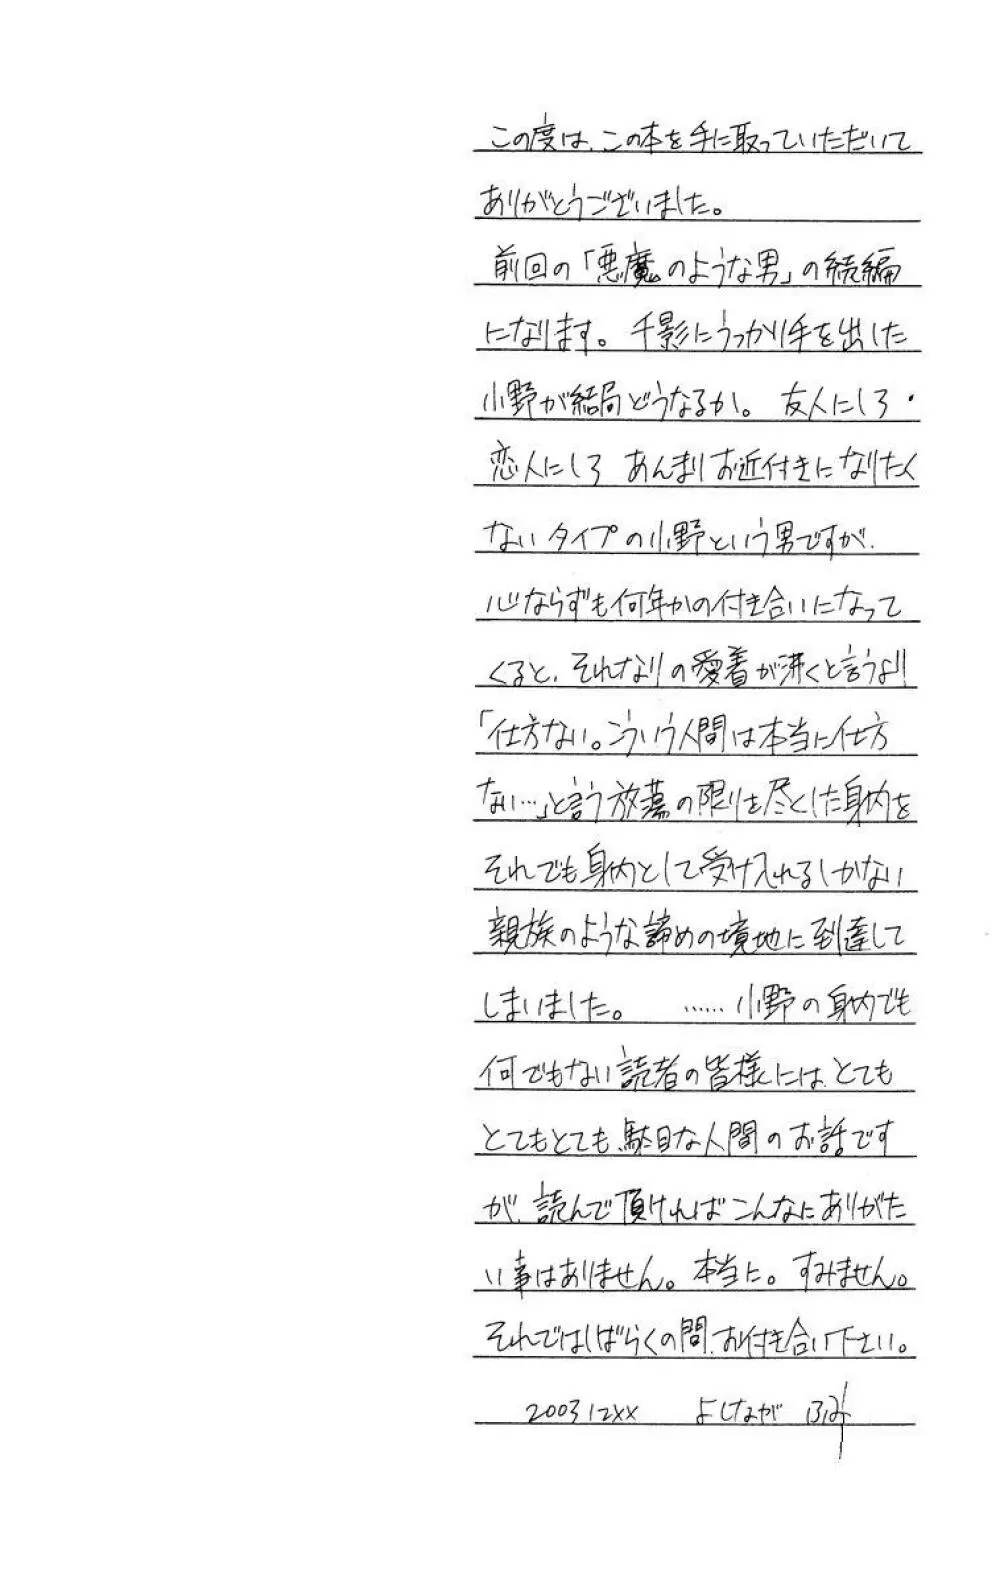 この度は、この本を手に取っていただいて
ありがとうございました。
前回の「悪魔のような男」の続編
になります。千影にうっかり手を出した
小野が結局どうなるか。友人にしろ・
恋人にしろ あんまりお近付きになりたく
ないタイプの小野という男ですが、
心ならずも何年かの付き合いになって
くると、それなりの愛着が沸くと言うより
「仕方ない。こういう人間は本当に仕方
ない…」と言う放蕩の限りを尽くした身内を
それでも身内として受け入れるしかない
親族のような諦めの境地に到達して
しまいました。 ……小野の身内でも
何でもない読者の皆様には、とても
とてもとても、駄目な人間のお話です
が、読んで頂ければこんなにありがた
い事はありません。本当に。すみません。
それではしばらくの間、お付き合い下さい。
2003 12XX よしながふみ